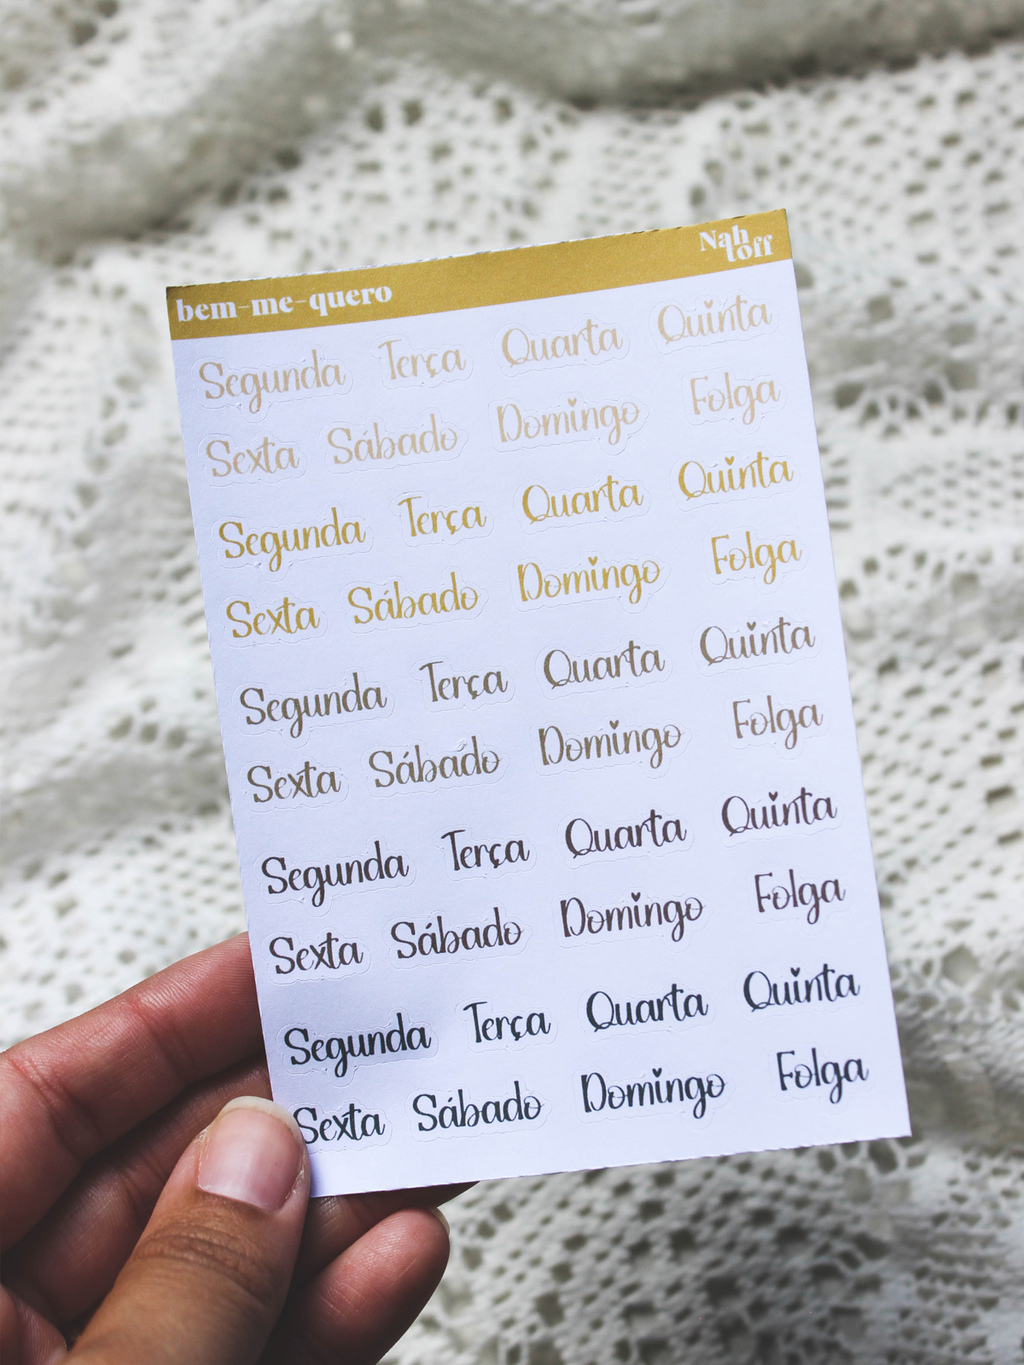 bem-me-quero
Nah
toff
Segunda Terça Quarta Quinta
Sexta Sábado Domingo Folga
Segunda Terça Quarta Quinta
Sexta Sábado Domingo Folga
Segunda Terça Quarta Quinta
Sexta Sábado Domingo Folga
Segunda Terça Quarta Quinta
Sexta Sábado Domingo Folga
Segunda Terça Quarta Quinta
Sexta Sábado Domingo Folga